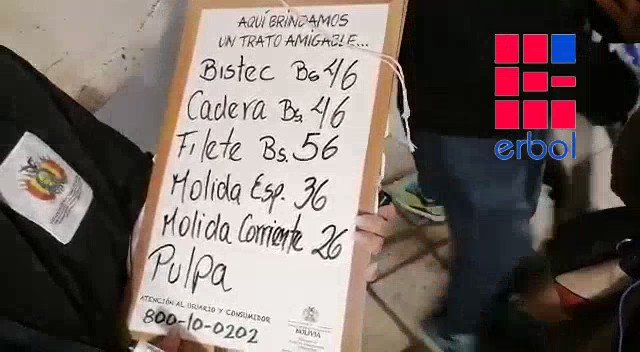 AQUÍ BRINDAMOS
UN TRATO AMIGABLE...
Bistec Bs 46
Cadera Bs. 46
Filete Bs. 56
Molida Esp. 36
Molida Corriente 26
Pulpa
ATENCIÓN AL USUARIO Y CONSUMIDOR
800-10-0202
BOLIVIA
erbol